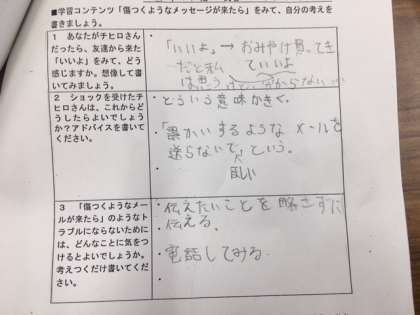 ■学習コンテンツ「傷つくようなメッセージが来たら」をみて、自分の考えを
書きましょう。
1 あなたがチヒロさん
だったら、友達から来た
「いいよ」をみて、どう
感じますか。想像して書
いてみましょう。
「いいよ」→おみやげ
だと私 ていいよ
は思う
2 ショックを受けたチ
ヒロさんは、これからど
うしたらよいでしょう
か?アドバイスを書いて
ください。
・どういう意味かきく。
・「 かいするような メールを
送らないで」という。
ほしい
3 「傷つくようなメー
ルが来たら」のようなト
ラブルにならないために
は、どんなことに気をつ
けるとよいでしょうか。
考えつくだけ書いてくだ
さい。
・伝えたいことを略さずに
・伝える。
・電話してみる